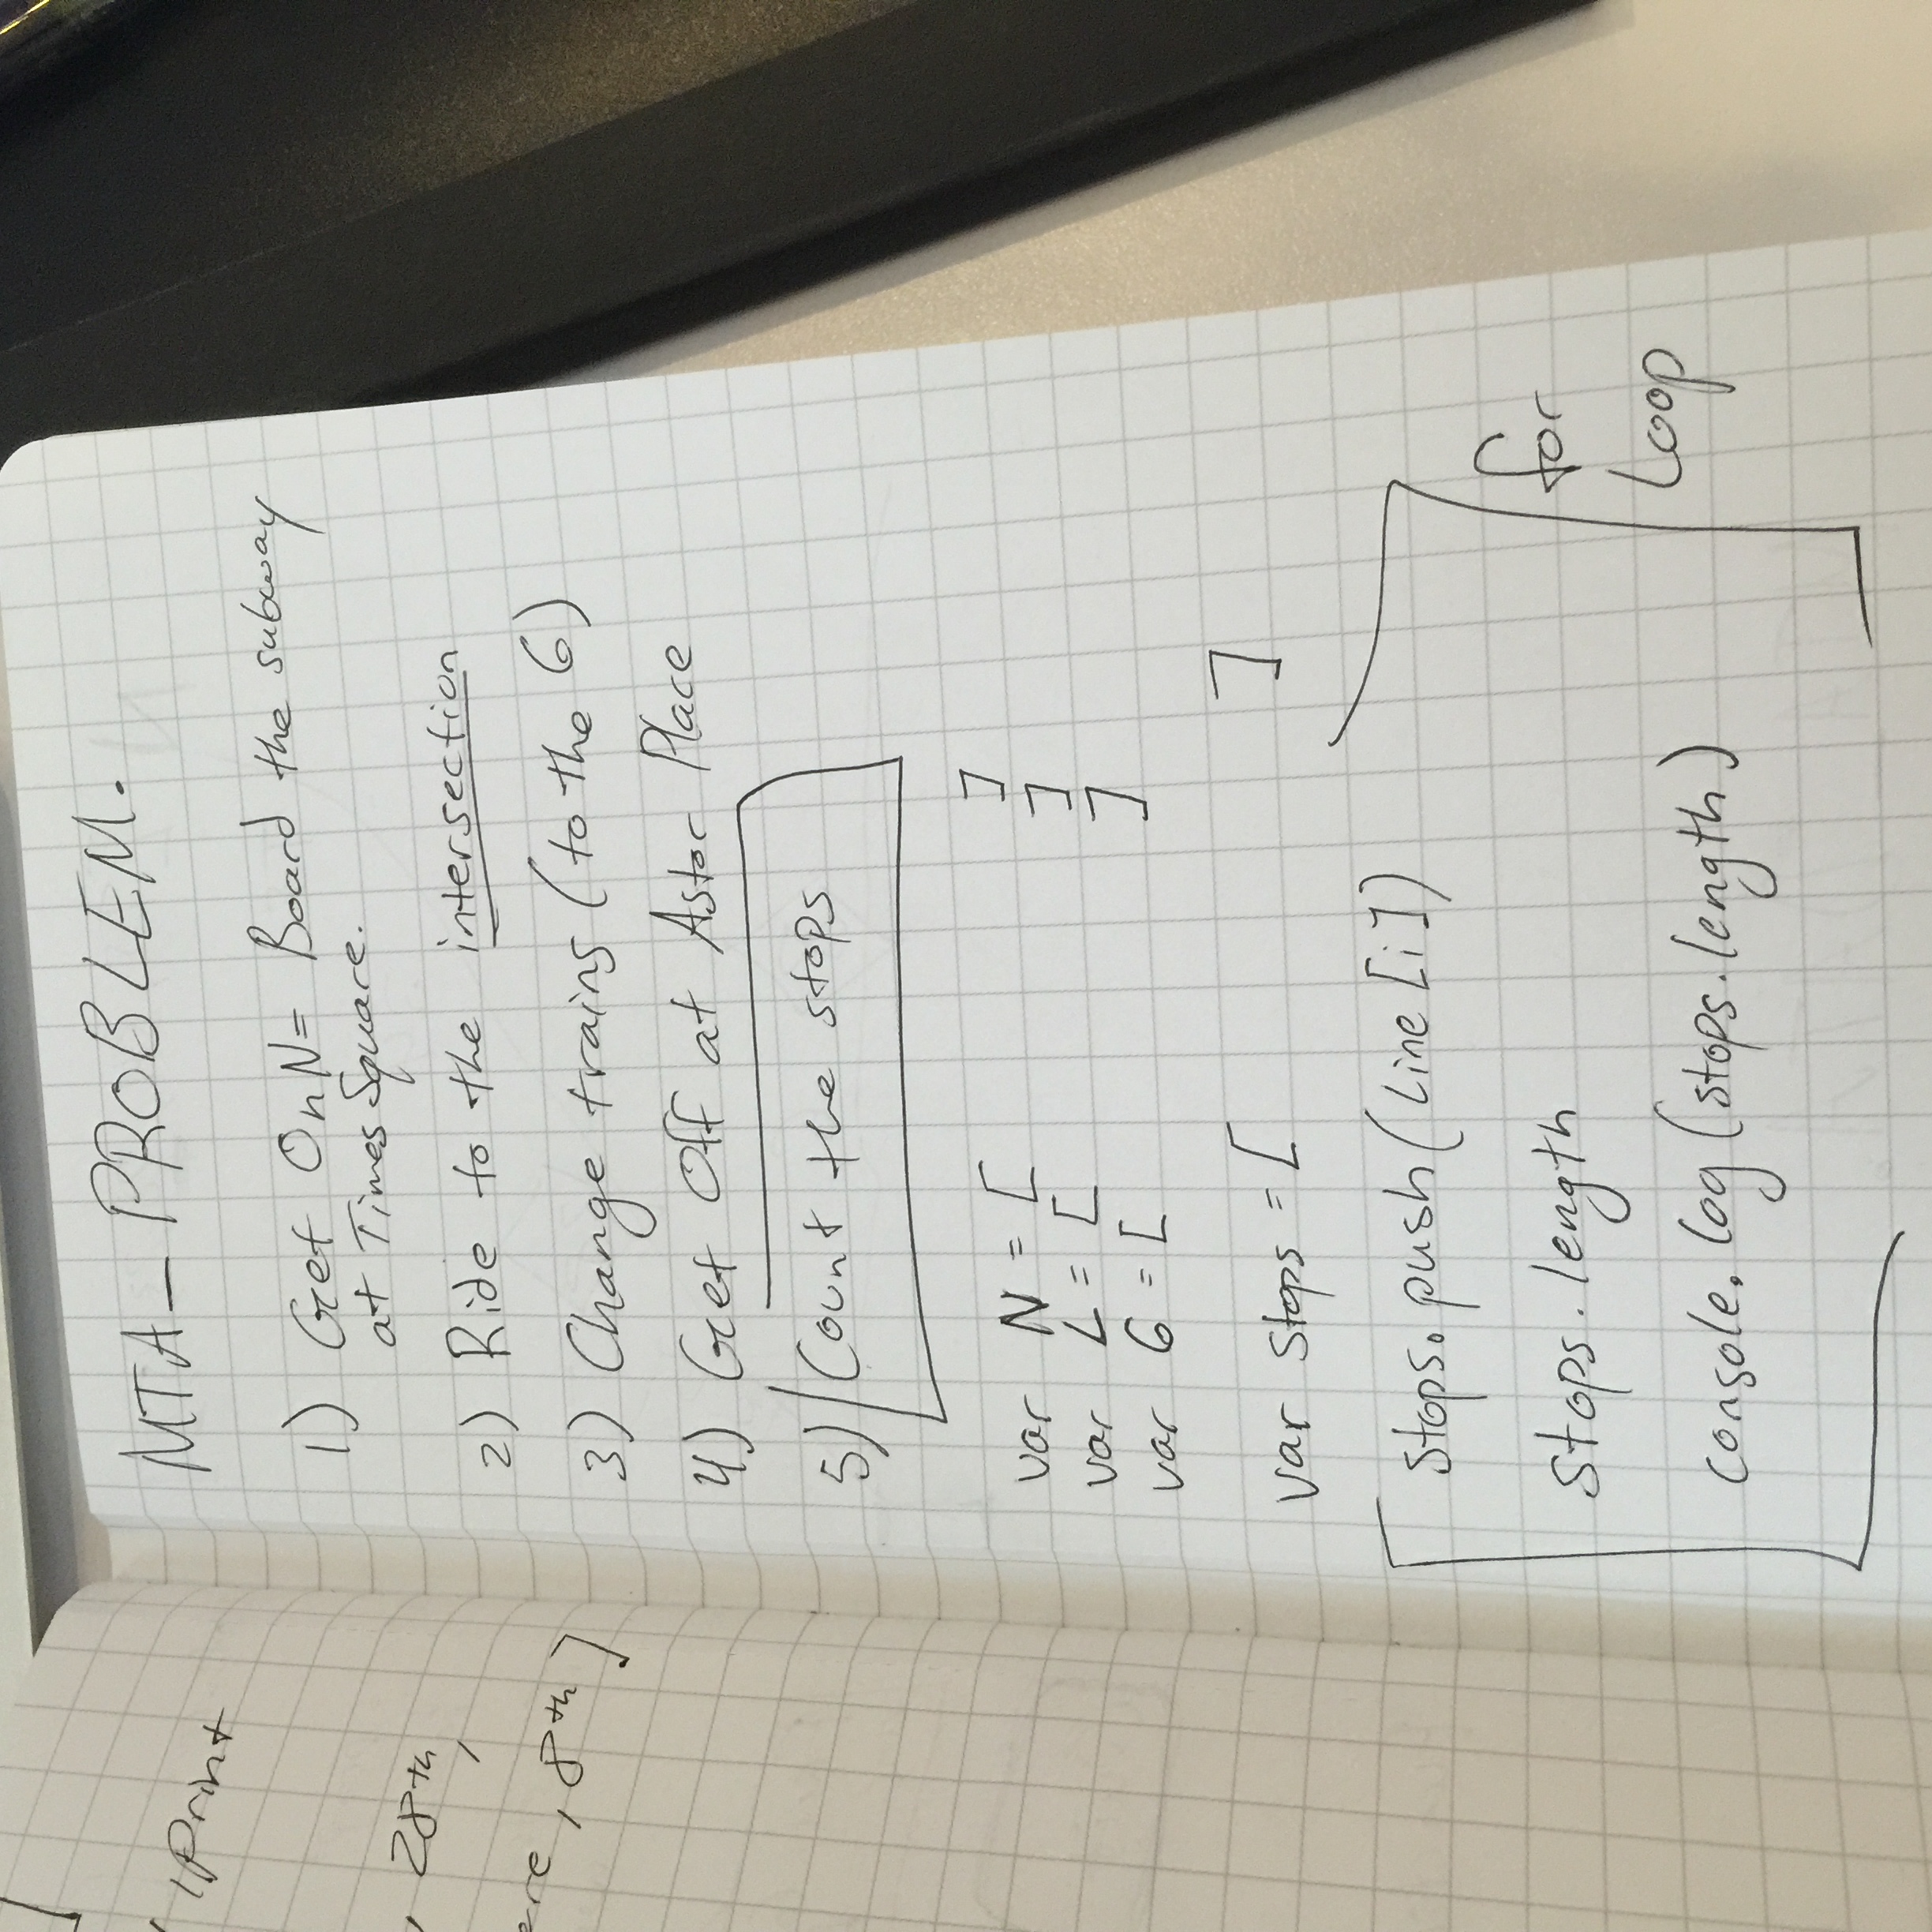 , print
, 28th,
ere, 8th]
MTA_PROBLEM.
1) Get On N = Board the subway
at Times Square.
2) Ride to the intersection
3) Change trains (to the 6)
4) Get Off at Astor Place
5) Count the stops
var N = [ ]
var L = [ ]
var 6 = [ ]
var stops = [ ]
stops.push(line[i])
stops.length
console.log(stops.length)
for
loop